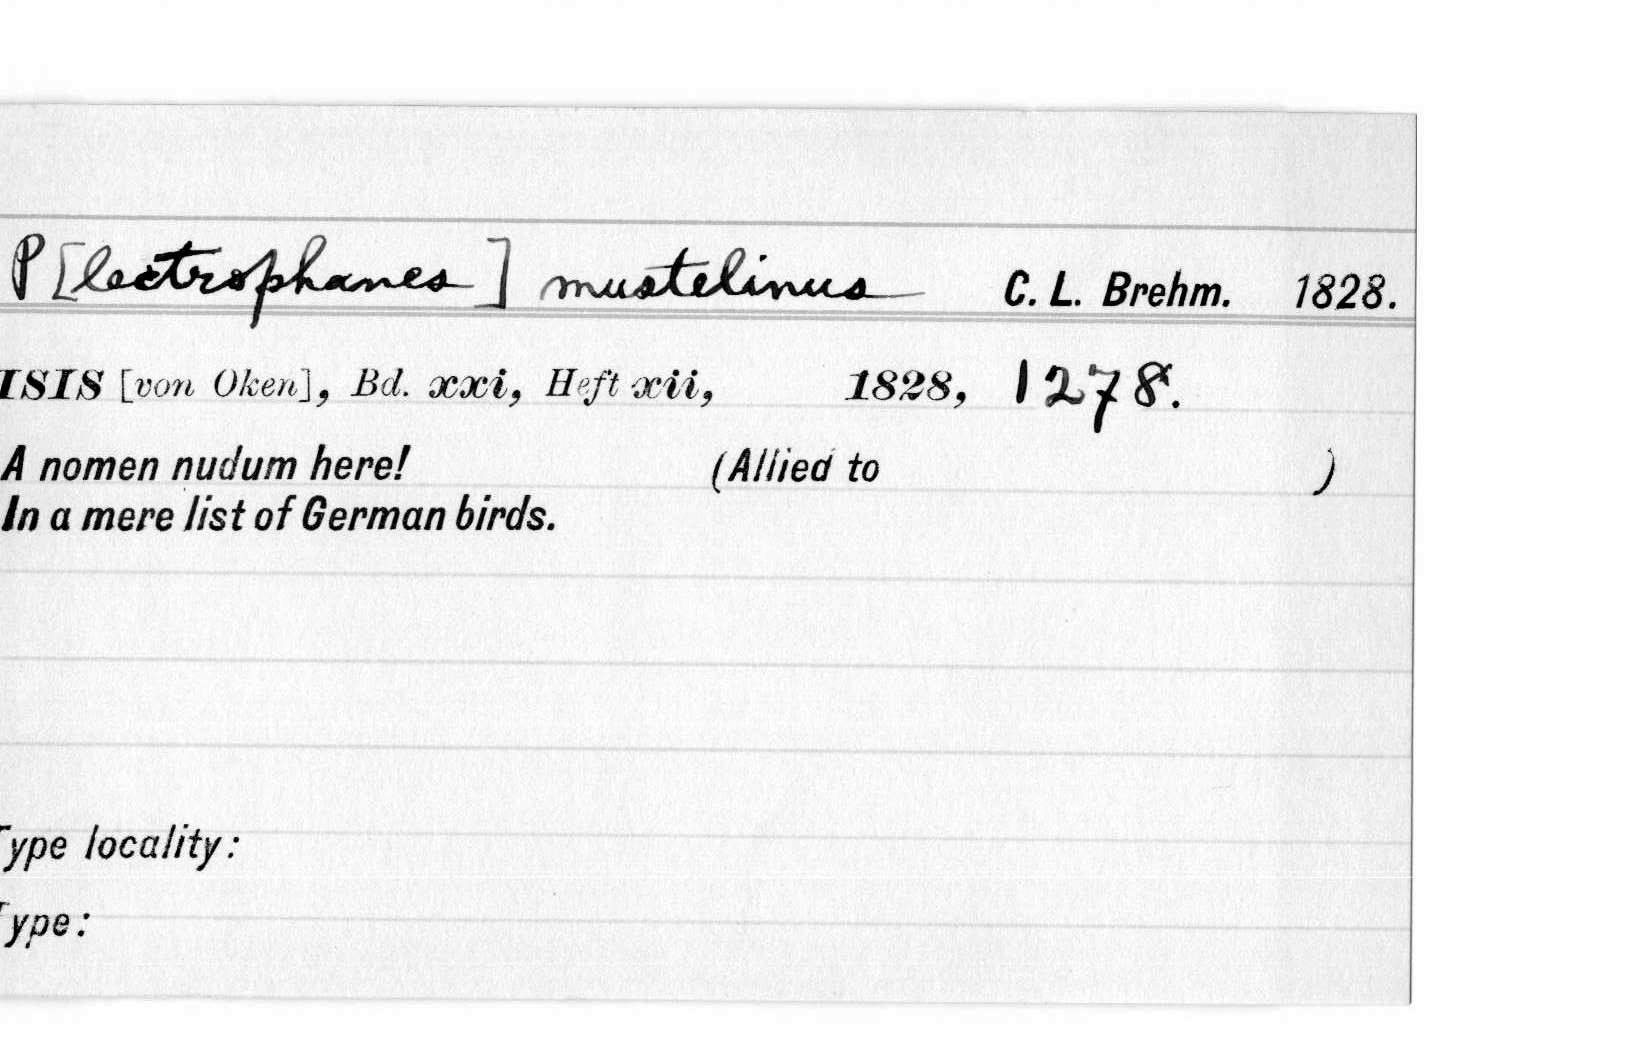 P[lectrophanes] mustelinus C. L. Brehm. 1828.
ISIS [von Oken], Bd. xxi, Heft xii, 1828, 1278.
A nomen nudum here! (Allied to )
In a mere list of German birds.
Type locality:
Type: